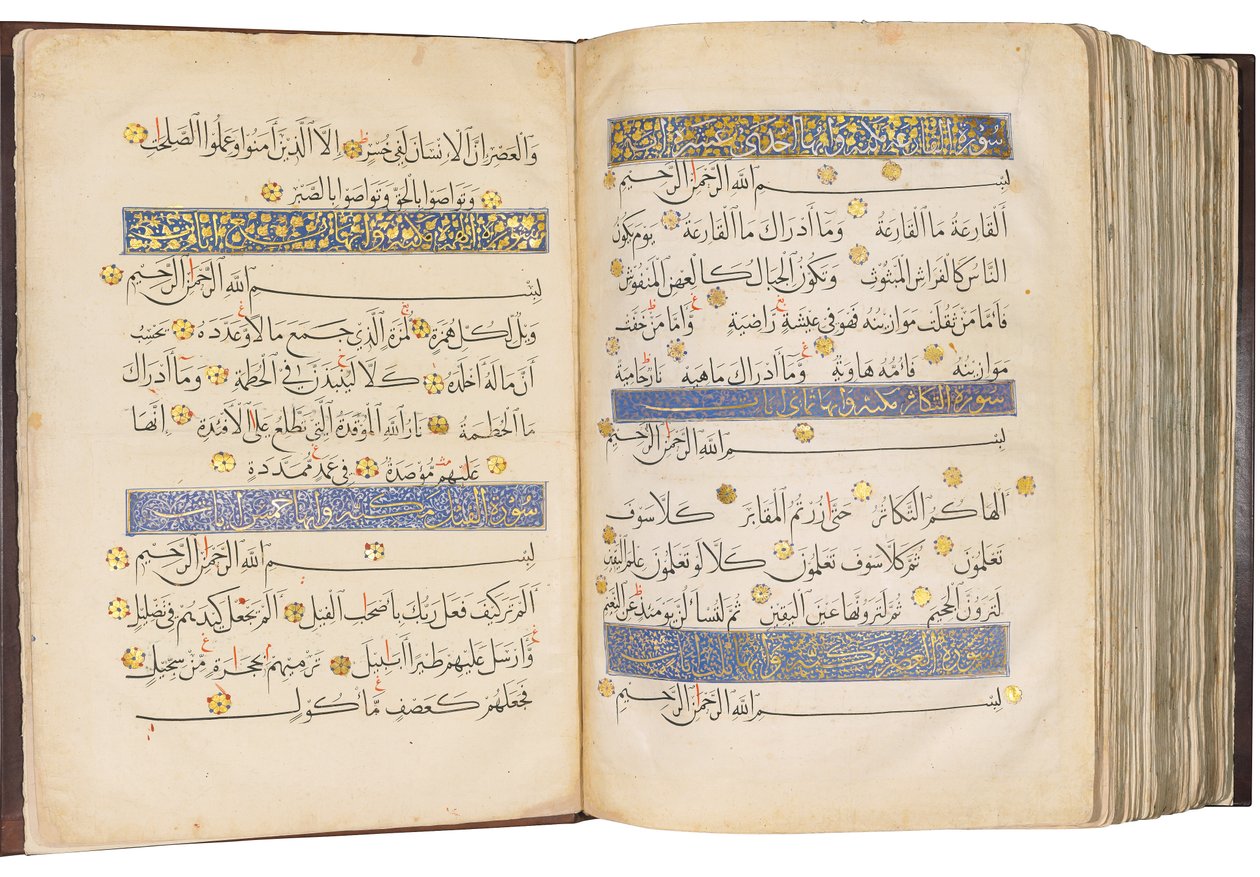 سورة القارعة مكية وايها احدى عشرة اية
بِسْمِ اللَّهِ الرَّحْمَنِ الرَّحِيمِ
أَلْقَارِعَةُ مَا الْقَارِعَةُ وَمَا أَدْرَاكَ مَا الْقَارِعَةُ يَوْمَ يَكُونُ
النَّاسُ كَالْفَرَاشِ الْمَبْثُوثِ وَتَكُونُ الْجِبَالُ كَالْعِهْنِ الْمَنْفُوشِ
فَأَمَّا مَنْ ثَقُلَتْ مَوَازِينُهُ فَهُوَ فِي عِيشَةٍ رَّاضِيَةٍ وَّأَمَّا مَنْ خَفَّتْ
مَوَازِينُهُ فَأُمُّهُ هَاوِيَةٌ وَّمَا أَدْرَاكَ مَاهِيَهْ نَارٌ حَامِيَةٌ
سورة التكاثر مكية وايها ثماني ايات
بِسْمِ اللَّهِ الرَّحْمَنِ الرَّحِيمِ
أَلْهَاكُمُ التَّكَاثُرُ حَتَّى زُرْتُمُ الْمَقَابِرَ كَلَّا سَوْفَ
تَعْلَمُونَ ثُمَّ كَلَّا سَوْفَ تَعْلَمُونَ كَلَّا لَوْ تَعْلَمُونَ عِلْمَ الْيَقِينِ
لَتَرَوُنَّ الْجَحِيمَ ثُمَّ لَتَرَوُنَّهَا عَيْنَ الْيَقِينِ ثُمَّ لَتُسْأَلُنَّ يَوْمَئِذٍ عَنِ النَّعِيمِ
سورة العصر مكية وايها ثلث ايات
بِسْمِ اللَّهِ الرَّحْمَنِ الرَّحِيمِ
وَالْعَصْرِ إِنَّ الْإِنْسَانَ لَفِي خُسْرٍ إِلَّا الَّذِينَ آمَنُوا وَعَمِلُوا الصَّلِحَاتِ
وَتَوَاصَوْا بِالْحَقِّ وَتَوَاصَوْا بِالصَّبْرِ
سورة الهمزة مكية وايها تسع ايات
بِسْمِ اللَّهِ الرَّحْمَنِ الرَّحِيمِ
وَيْلٌ لِكُلِّ هُمَزَةٍ لُّمَزَةٍ الَّذِي جَمَعَ مَالًا وَعَدَّدَهُ يَحْسَبُ
أَنَّ مَالَهُ أَخْلَدَهُ كَلَّا لَيُنْبَذَنَّ فِي الْحُطَمَةِ وَمَا أَدْرَاكَ
مَا الْحُطَمَةُ نَارُ اللَّهِ الْمُوقَدَةُ الَّتِي تَطَّلِعُ عَلَى الْأَفْئِدَةِ إِنَّهَا
عَلَيْهِمْ مُّؤْصَدَةٌ فِي عَمَدٍ مُّمَدَّدَةٍ
سورة الفيل مكية وايها خمس ايات
بِسْمِ اللَّهِ الرَّحْمَنِ الرَّحِيمِ
أَلَمْ تَرَ كَيْفَ فَعَلَ رَبُّكَ بِأَصْحَابِ الْفِيلِ أَلَمْ يَجْعَلْ كَيْدَهُمْ فِي تَضْلِيلٍ
وَّأَرْسَلَ عَلَيْهِمْ طَيْرًا أَبَابِيلَ تَرْمِيهِمْ بِحِجَارَةٍ مِّنْ سِجِّيلٍ
فَجَعَلَهُمْ كَعَصْفٍ مَّأْكُولٍ